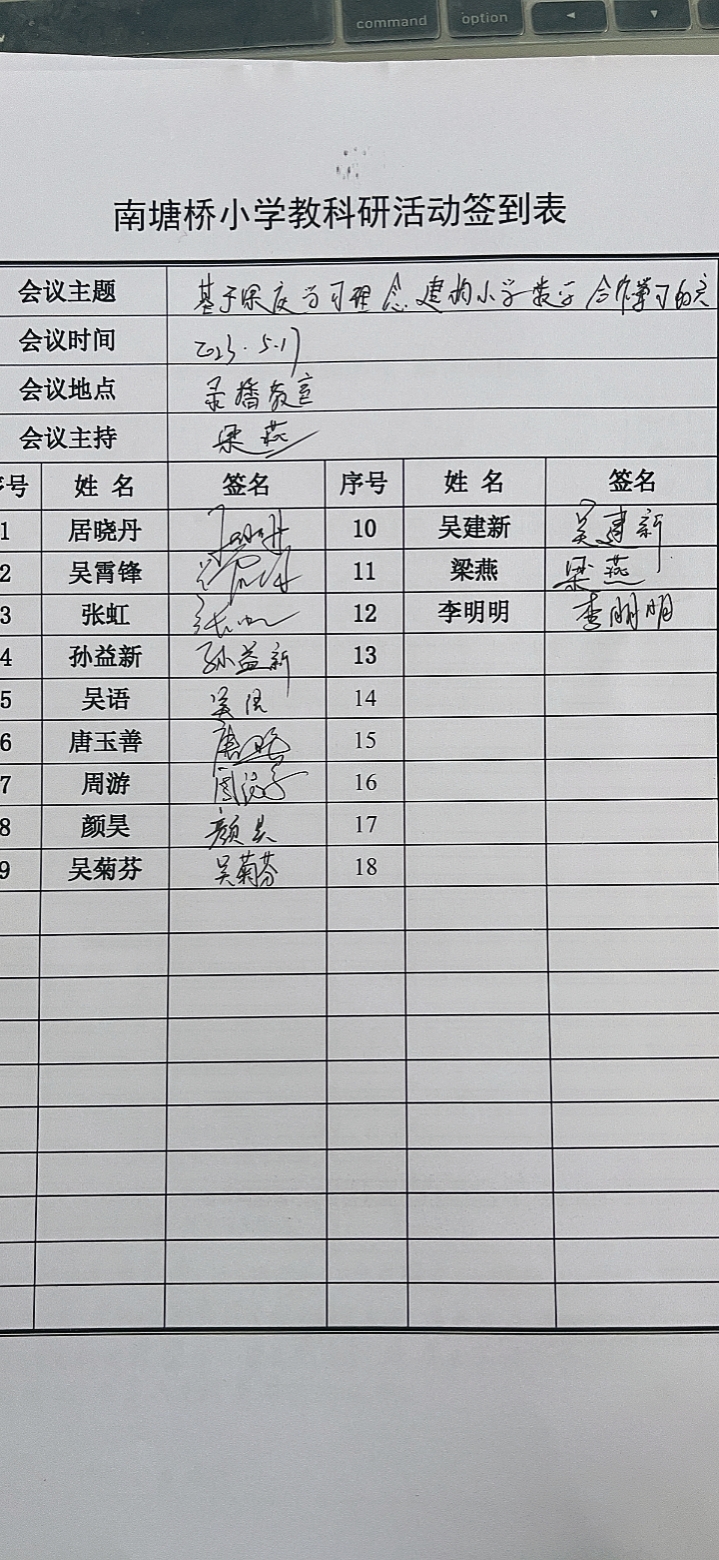 command option
南塘桥小学教科研活动签到表
会议主题 基于深度学习理念 建构小学数学 合作学习的
会议时间 2023.5.17
会议地点 录播教室
会议主持 梁燕
号 姓 名 签名 序号 姓 名 签名
1 居晓丹 10 吴建新 吴建新
2 吴霄锋 11 梁燕 梁燕
3 张虹 张虹 12 李明明 李明明
4 孙益新 孙益新 13
5 吴语 吴语 14
6 唐玉善 15
7 周游 周游 16
8 颜昊 颜昊 17
9 吴菊芬 吴菊芬 18